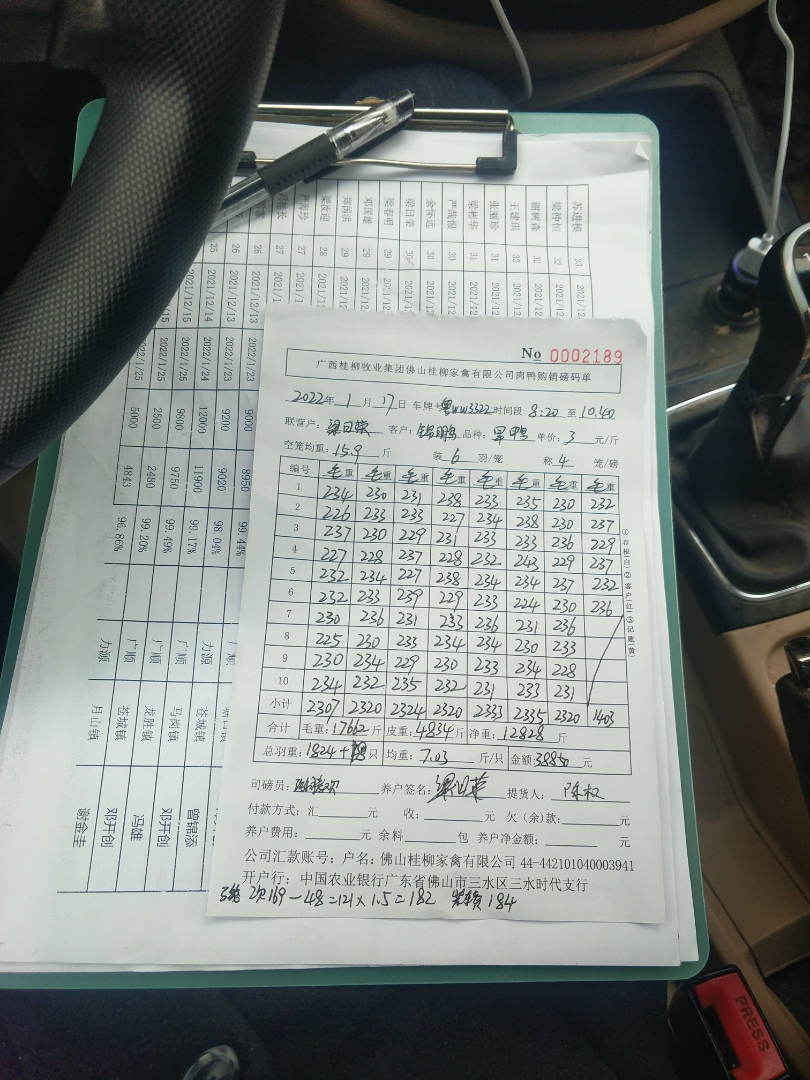 No 0002189
广西桂柳牧业集团佛山桂柳家禽有限公司肉鸭购销磅码单
2022年 1月 17日 车牌:粤WW3322 时间段 8:20 至 10.40
联营户: 梁日荣 客户: 品种: 旱鸭 单价: 3 元/斤
空笼均重: 15.9 斤 装 6 羽/笼 称 4 笼/磅
编号 毛重 毛重 毛重 毛重 毛重 毛重 毛重 毛重
1 234 230 231 238 233 235 230 232
2 226 233 233 227 234 238 230 237
3 237 230 229 231 233 233 236 229
4 227 228 237 228 232 243 229 237
5 232 234 227 238 234 234 237 232
6 232 233 239 229 233 224 230 236
7 230 236 231 233 236 231 236
8 225 230 233 234 234 230 233
9 230 234 229 230 233 234 228
10 234 232 235 232 231 233 231
小计 2307 2320 2324 2320 2333 2335 2320 1403
合计 毛重: 17662 斤 皮重: 4834 斤 净重: 12828 斤
总羽重: 1824+ 只 均重: 7.03 斤/只 金额: 38850 元
司磅员: 养户签名: 梁日荣 提货人: 陈权
付款方式: 汇 元 收: 元 欠(余)款: 元
养户费用: 元 余料 包 养户净金额: 元
公司汇款账号: 户名: 佛山桂柳家禽有限公司 44-442101040003941
开户行: 中国农业银行广东省佛山市三水区三水时代支行
次169-48=121×1.5=182 184
①存根(白)②客户(红)③记账(黄)
苏进根 33
梁仲恒 32 2021/12
谢树森 32 2021/12
王建琪 32 2021/12
张丽珍 31 2021/12
梁彬华 31 2021/12
严哉根 30 2021/12
余怀远 30 2021/12
梁日荣 30 2021/12
梁春明 29 2021/12
邓国雄 29 2021/12
郑国洪 29 2021/12
梁汝迎 28 2021/12
27 2021/1
27 2021/1
26 2021/12/13 2022/1/23 9000 8950 99.44%
26 2021/12/13 2022/1/23 9200 9020 98.04% 力源
25 2021/12/14 2022/1/24 12000 11900 99.17% 广顺 苍城镇 曾锦添
2021/12/15 2022/1/25 9800 9750 99.49% 广顺 马岗镇 邓开创
2022/1/25 2500 2480 99.20% 广顺 龙胜镇 冯雄
5000 4843 96.86% 广顺 苍城镇 邓开创
力源 月山镇 谢金圭
PRESS